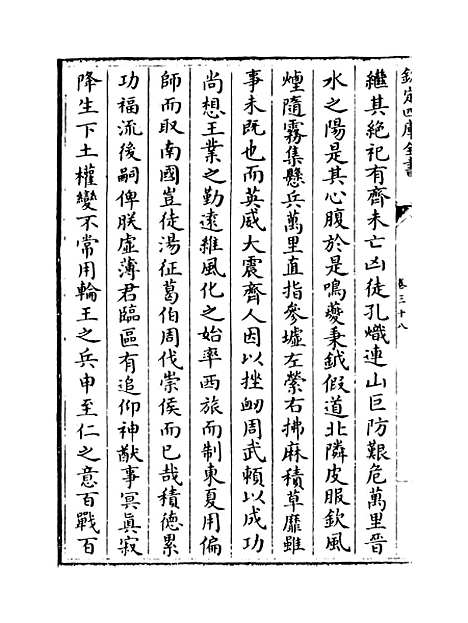 欽定四庫全書
卷三十八
繼其絶祀有齊未亡凶徒孔熾連山巨防艱危萬里晉
水之陽是其心腹於是鳴鼙秉鉞假道北隣皮服欽風
煙隨霧集懸兵萬里直指參墟左縈右拂麻積草靡雖
事未既也而英威大震齊人因以挫衂周武頼以成功
尚想王業之勤遠維風化之始率西旅而制東夏用偏
師而取南國豈徒湯征葛伯周伐崇侯而已哉積德累
功福流後嗣俾朕虛薄君臨區有追仰神猷事冥眞寂
降生下土權變不常用輪王之兵申至仁之意百戰百